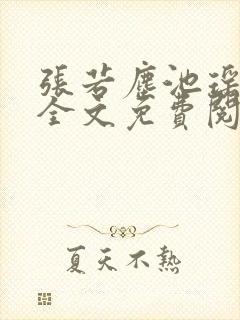 張若塵池瑤
全文免費閱
夏天不熱